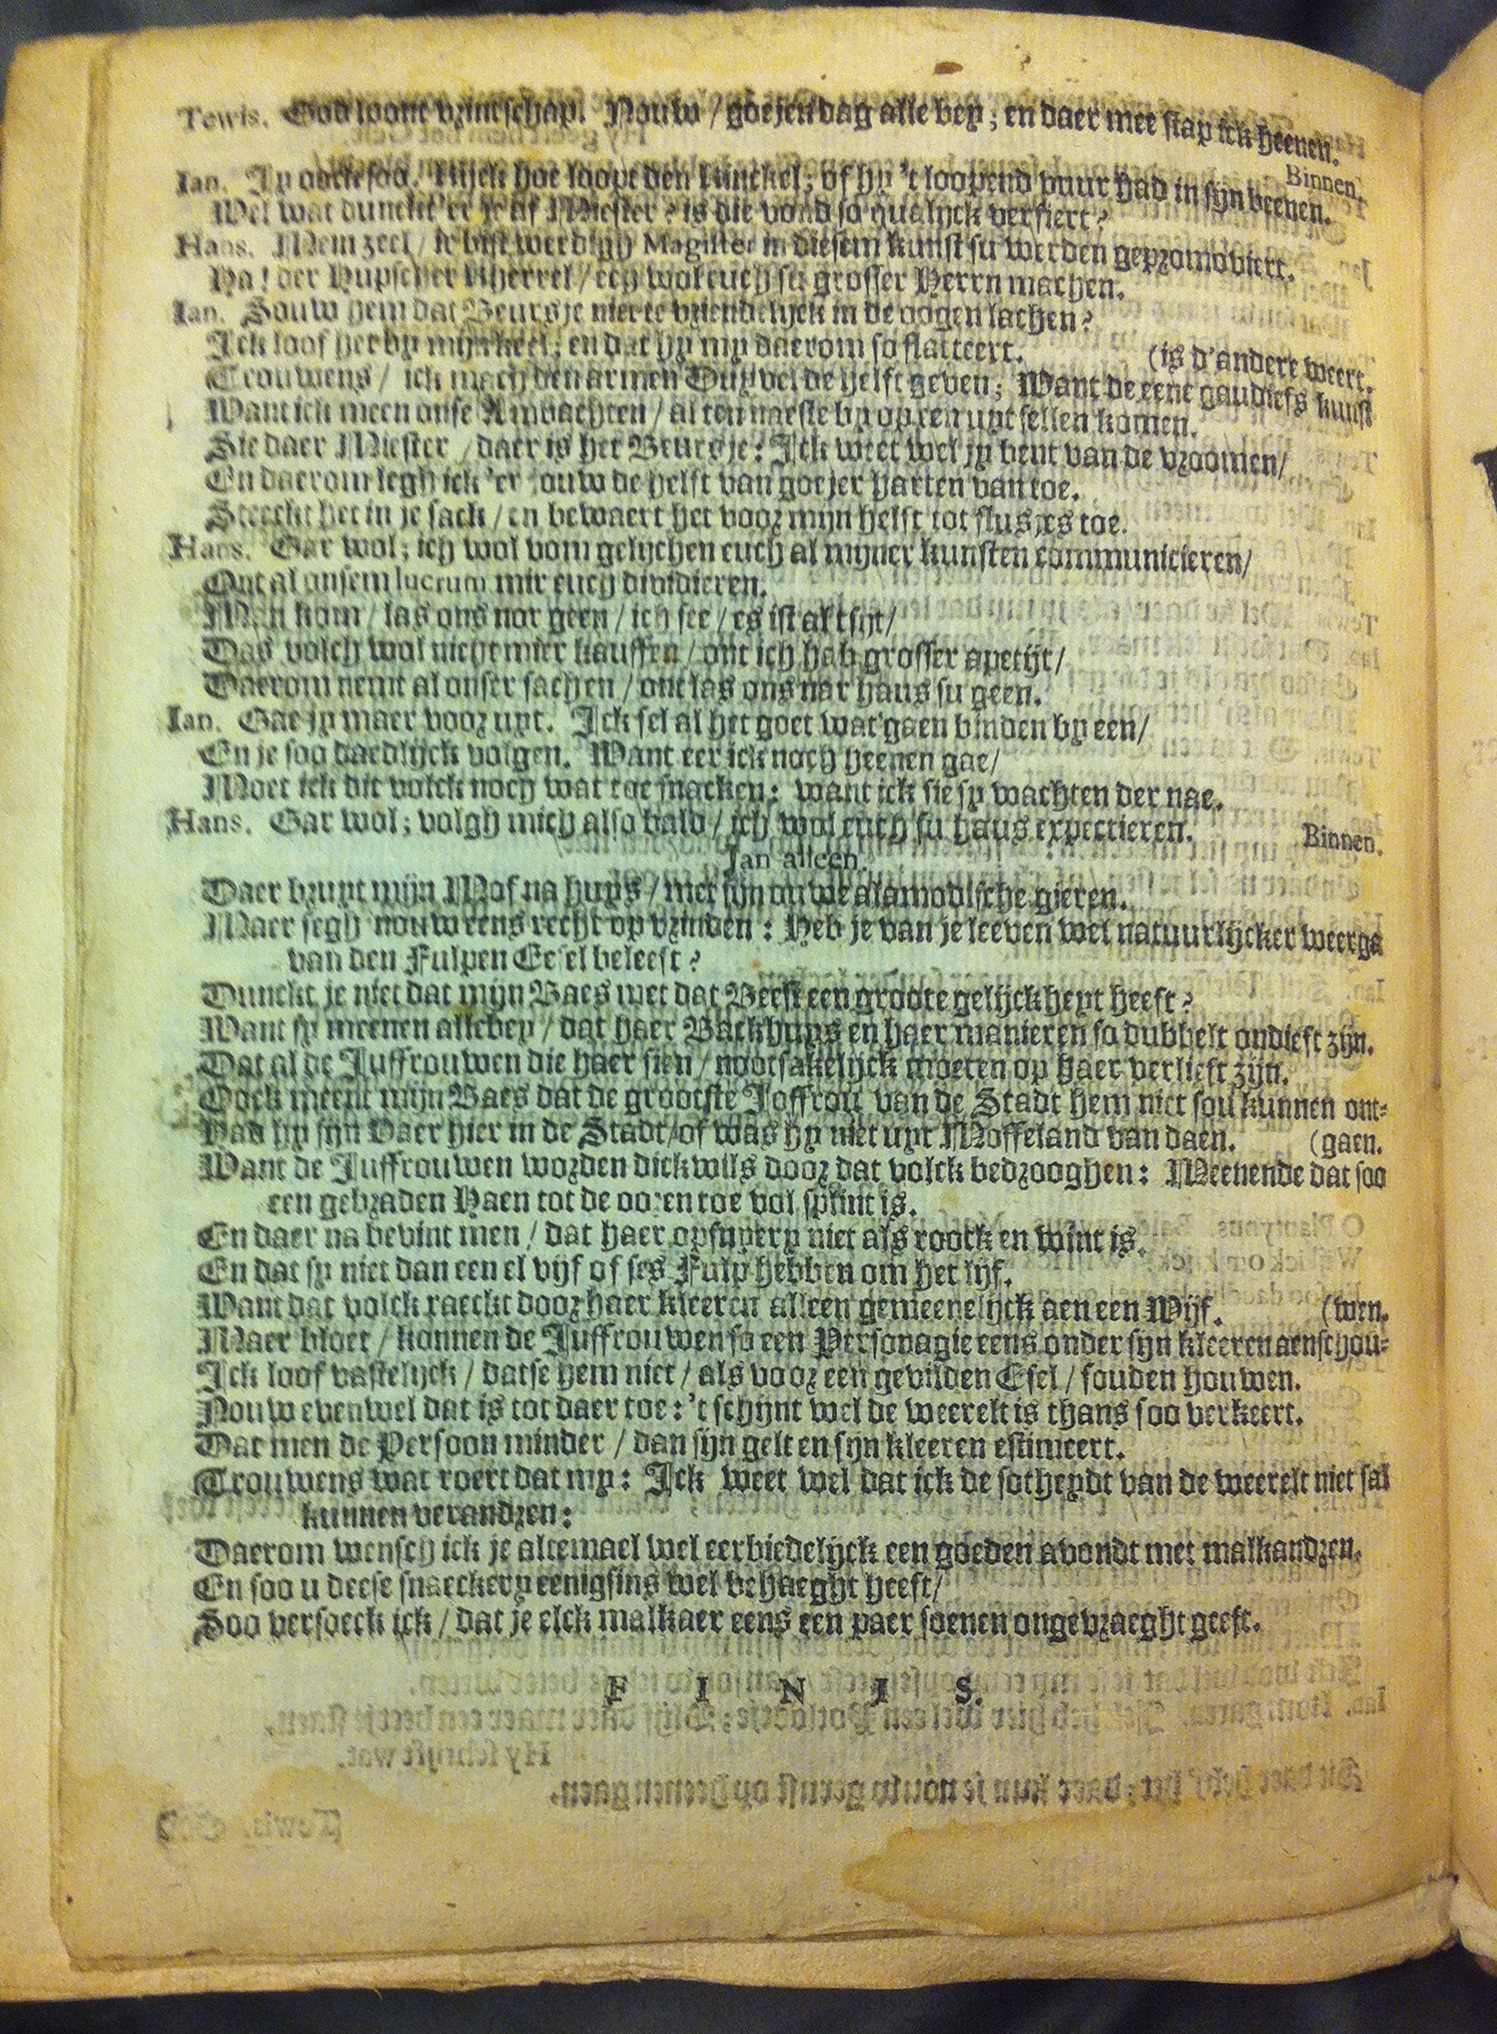 Tewis. God loont vrintschap. Nouw / goejen dag alle bey; en daer mee stap ick heenen.
Binnen.
Ian. Jy oock soo. Kijck hoe loopt den kinckel; of hy 't loopend vuur had in sijn beenen.
Wel wat dunckt'er je af Miester? is die vond so qualijck versiert?
Hans. Mein zeel / ir bist werdigh Magister in diesem kunst su werden gepromoviert.
Ha! der Hupscher Kherrel / ech wol euch su grosser Herrn machen.
Ian. Souw hem dat Beursje niet te vriendelijck in de oogen lachen?
Ick loof het by mijn keel; en dat hy my daerom so flatteert. (is d'andere weert.
Trouwens / ick mach den armen Duyvel de helft geven; Want de eene gaudiefs kunst
Want ick meen onse Ambachten / al ten naesten by op een uyt sellen komen.
Sie daer Miester / daer is het Beursje: Ick weet wel jy bent van de vroomen /
En daerom legh ick 'er jouw de helft van goejer harten van toe.
Steeckt het in je sack / en bewaert het voor mijn helft tot flusjes toe.
Hans. Gar wol; ich wol vom gelychen euch al mijner kunsten communicieren /
Ont al onsem lucrum mit euch dividieren.
Man kom / las ons nor geen / ich see / es ist al tsijt /
Das volch wol nicht mier kauffen / ont ich hab grosser apetijt /
Daerom nemt al onser sachen / ont las ons nar haus su geen.
Ian. Gae jy maer voor uyt. Ick sel al het goet wat gaen binden by een /
En je soo daedlijck volgen. Want eer ick noch heenen gae /
Moet ick dit volck noch wat toe snacken: want ick sie sy wachten der nae.
Hans. Gar wol; volgh mich also bald / ich wol euch su haus expectieren. Binnen.
Jan alleen.
Daer bruyt mijn Mof na huys / met sijn ouwe alamodische gieren.
Maer segh nouw eens recht op vrinden: Heb je van je leeven wel natuurlijcker weerga
van den Fulpen Eesel beleeft?
Dunckt je niet dat mijn Baes met dat Beest een groote gelijckheyt heeft?
Want sy meenen allebey / dat haer Backhuys en haer manieren so dubbelt ondieft zijn.
Dat al de Juffrouwen die haer sien / nootsakelijck moeten op haer verlieft zijn.
Oock meent mijn Baes dat de grootste Joffrou van de Stadt hem niet sou kunnen ont-
Had hy sijn Vaer hier in de Stadt / of was hy niet uyt Moffeland van daen. (gaen.
Want de Juffrouwen worden dickwils door dat volck bedrooghen: Meenende dat soo
een gebraden Haen tot de ooren toe vol splint is.
En daer na bevint men / dat haer opsnyery niet als roock en wint is.
En dat sy niet dan een el vijf of ses Fulp hebben om het lijf.
Want dat volck raeckt door haer kleeren alleen gemeenelijck aen een Wijf. (wen.
Maer bloet / konnen de Juffrouwen so een Personagie eens onder sijn kleeren aenschou-
Ick loof vastelijck / datse hem niet / als voor een gevilden Esel / souden houwen.
Nouw evenwel dat is tot daer toe: 't schijnt wel de weerelt is thans soo verkeert.
Dat men de Persoon minder / dan sijn gelt en sijn kleeren estimeert.
Trouwens wat roert dat my: Ick weet wel dat ick de sotheydt van de weerelt niet sal
kunnen verandren:
Daerom wensch ick je altemael wel eerbiedelijck een goeden avondt met malkandren.
En soo u deese snaeckery eenigsins wel behaeght heeft /
Soo versoeck ick / dat je elck malkaer eens een paer soenen ongevraeght geeft.
F I N I S.